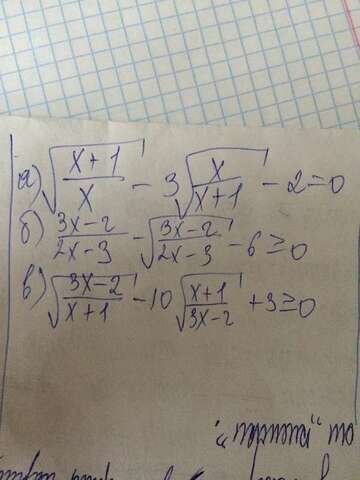 а) √((x+1)/x) - 3√(x/(x+1)) - 2 = 0
б) (3x-2)/(2x-3) - √((3x-2)/(2x-3)) - 6 ≥ 0
в) √((3x-2)/(x+1)) - 10√((x+1)/(3x-2)) + 3 ≥ 0